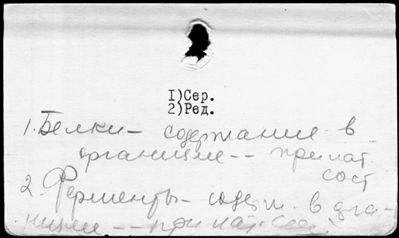 I)Сер.
2)Ред.
1. Белки – содержание в
организме -- при пат.
сост
2. Ферменты – содерж. в орга-
низме -- при пат. сост